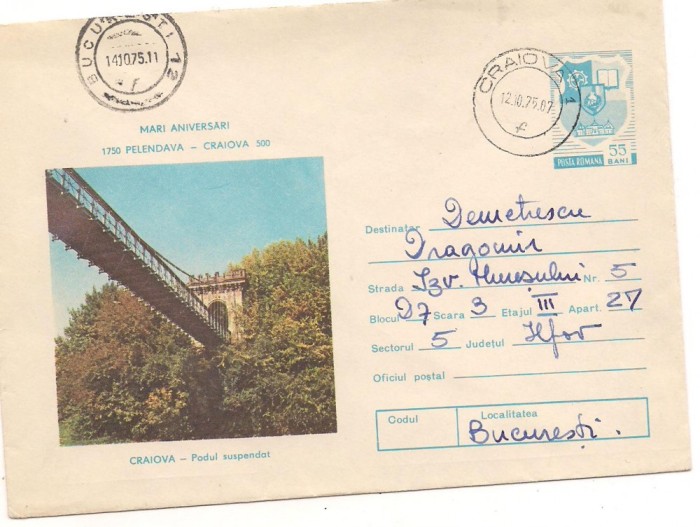 BUCUREȘTI 12
14.10.75.11
f
CRAIOVA 1
12.10.75.07
f
MARI ANIVERSĂRI
1750 PELENDAVA – CRAIOVA 500
POSTA ROMANA 55 BANI
CRAIOVA – Podul suspendat
Destinatar Demetrescu
Dragomir
Strada Izv. Mureșului Nr. 5
Blocul D7 Scara 3 Etajul III Apart. 27
Sectorul 5 Județul Ilfov
Oficiul poștal
Codul
Localitatea
București.